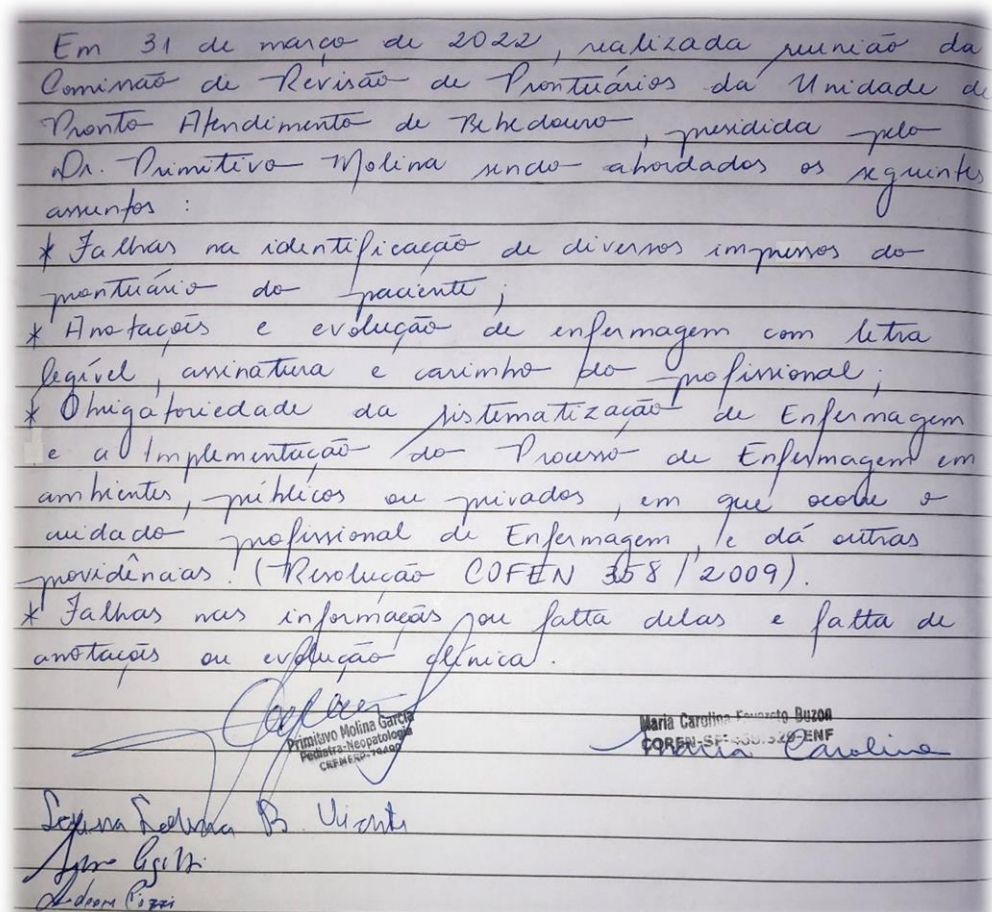 Em 31 de março de 2022, realizada reunião da
Comissão de Revisão de Prontuários da Unidade de
Pronto Atendimento de Bebedouro, presidida pelo
Dr. Primitivo Molina sendo abordados os seguintes
assuntos :
* Falhas na identificação de diversos impressos do
prontuário do paciente ;
* Anotações e evolução de enfermagem com letra
legível, assinatura e carimbo do profissional ;
* Obrigatoriedade da sistematização de Enfermagem
e a Implementação do Processo de Enfermagem em
ambientes, públicos ou privados, em que ocorre o
cuidado profissional de Enfermagem, e dá outras
providências. (Resolução COFEN 358/2009).
* Falhas nas informações ou falta delas e falta de
anotações ou evolução clínica.
Primitivo Molina Garcia
Pediatra-Neopatologia
Maria Carolina Buzon
COREN-SP -ENF
Maria Carolina
B.